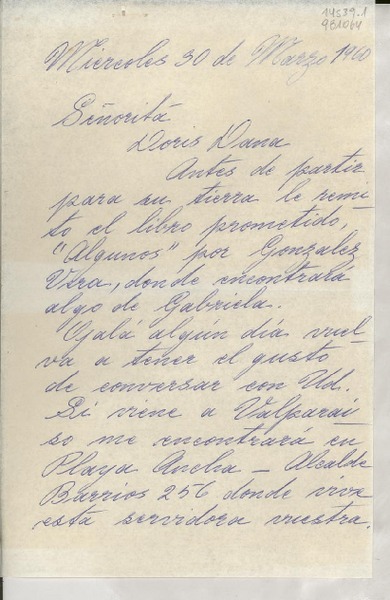 14539.1
981064
Miércoles 30 de Marzo 1960
Señorita
Doris Dana
Antes de partir
para su tierra le remi-
to el libro prometido,
"Algunos" por Gonzalez
Vera, donde encontrará
algo de Gabriela.
Ojalá algún día vuel-
va a tener el gusto
de conversar con Ud.
Si viene a Valparaí-
so me encontrará en
Playa Ancha - Alcalde
Barrios 256 donde vive
esta servidora vuestra.